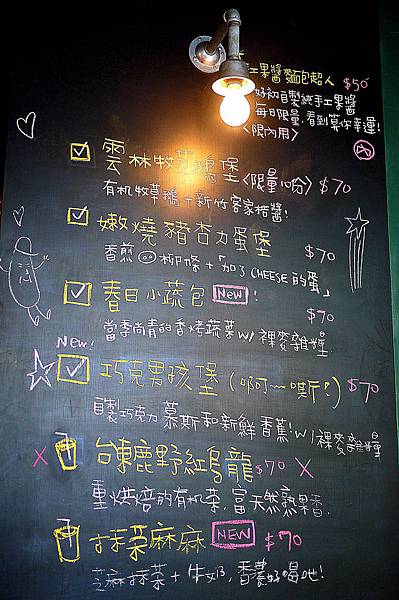 手工果醬麵包超人 $50
好初自製純手工果醬
每日限量 看到算你幸運!
<限內用>
雲林牧草鵝堡 <限量10份> $70
有机牧草鵝 + 新竹客家桔醬!
嫩燒豬杏力蛋堡 $70
香煎 柳條 + 「加了CHEESE的蛋」
春日小蔬包 New! $70
當季尚青的香烤蔬菜w/裸麥雜糧
New!
巧克男孩堡 (啊~嘶?) $70
自製巧克力慕斯和新鮮香蕉! w/裸麥雜糧
X 台東鹿野紅烏龍 $70 X
重烘焙的有机茶, 富天然熟果香.
抹茶麻麻 NEW $70
芝麻抹茶 + 牛奶, 香濃好喝吔!